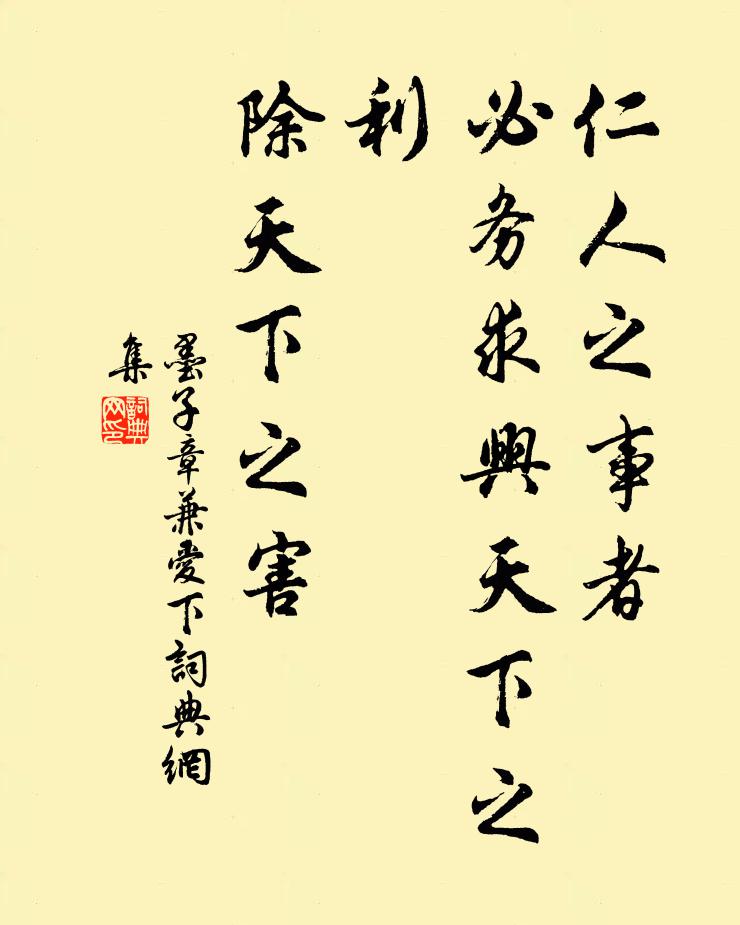 仁人之事者
必务求興天下之
利
除天下之害
墨子章兼愛下詞典網
集
詞典
网印